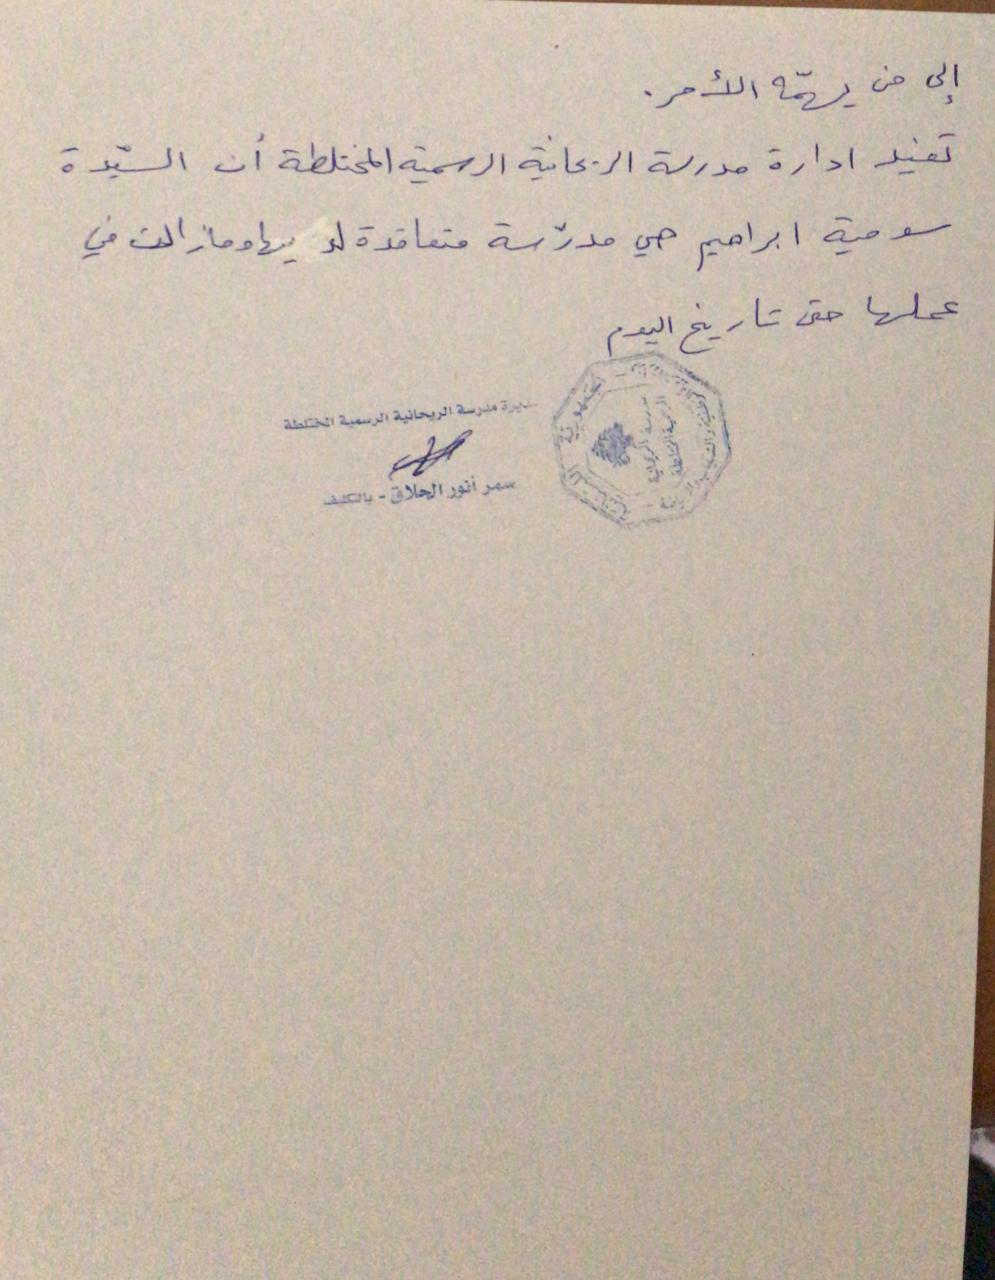 إلى من يهمّه الأمر.
تفيد ادارة مدرسة الريحانية الرسمية المختلطة أن السيّدة
سومية ابراهيم هي مدرّسة متعاقدة لديها وما زالت في
عملها حتى تاريخ اليوم
مديرة مدرسة الريحانية الرسمية المختلطة
سمر أنور الحلاق - بالتكليف
الجمهورية اللبنانية
مدرسة الريحانية
الرسمية المختلطة